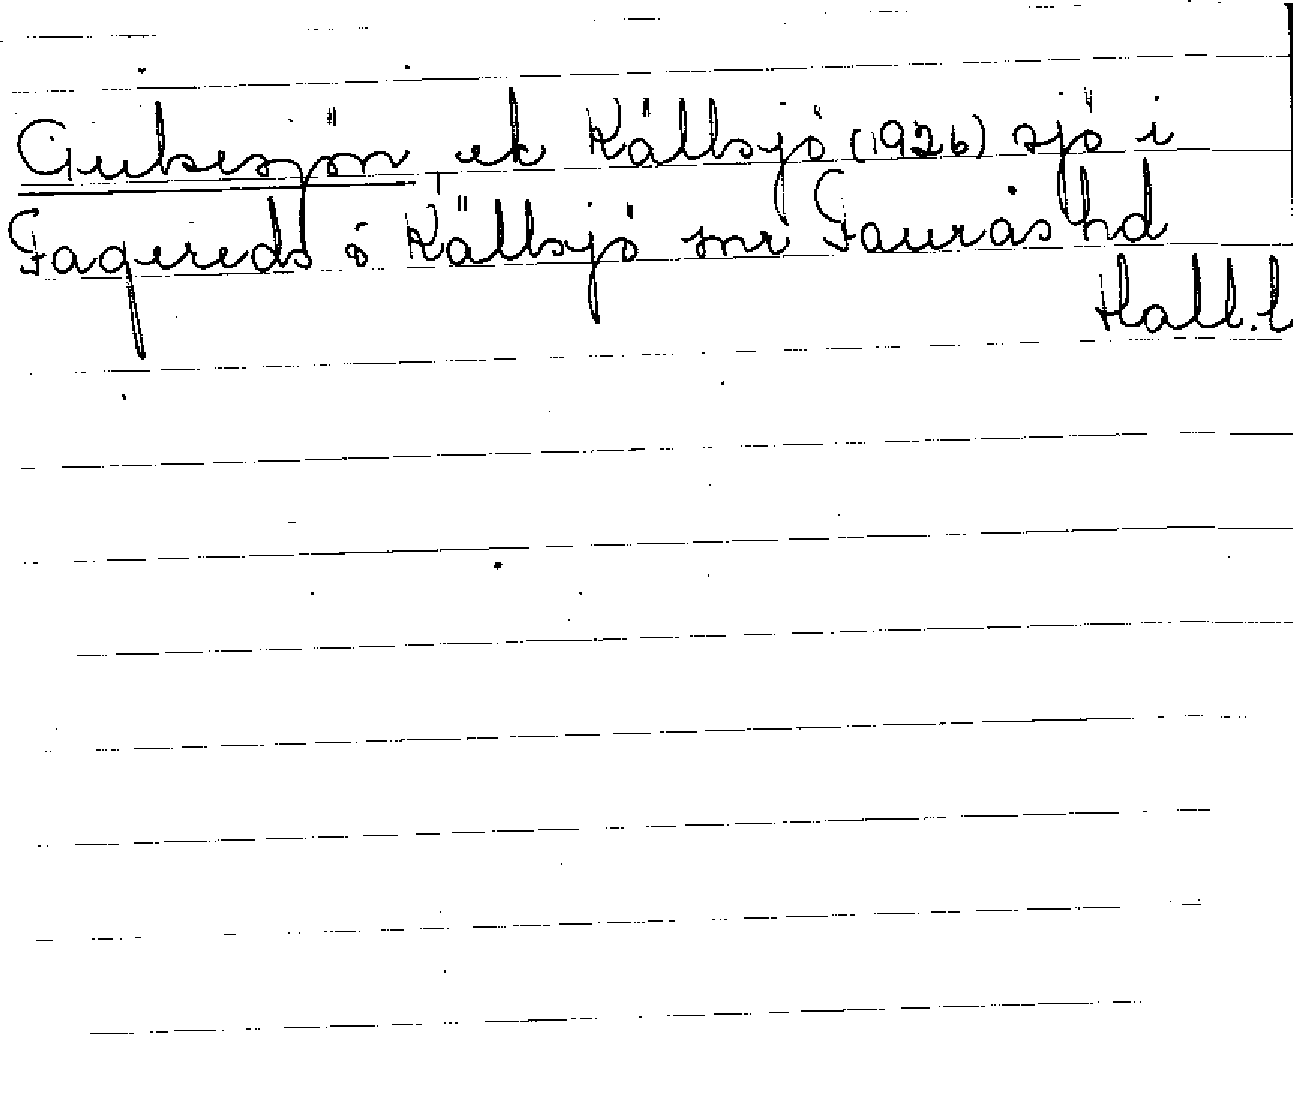 Gubesjön, ek Källsjö (1926) sjö i
Fagereds o Källsjö snr Faurås hd
Hall. l